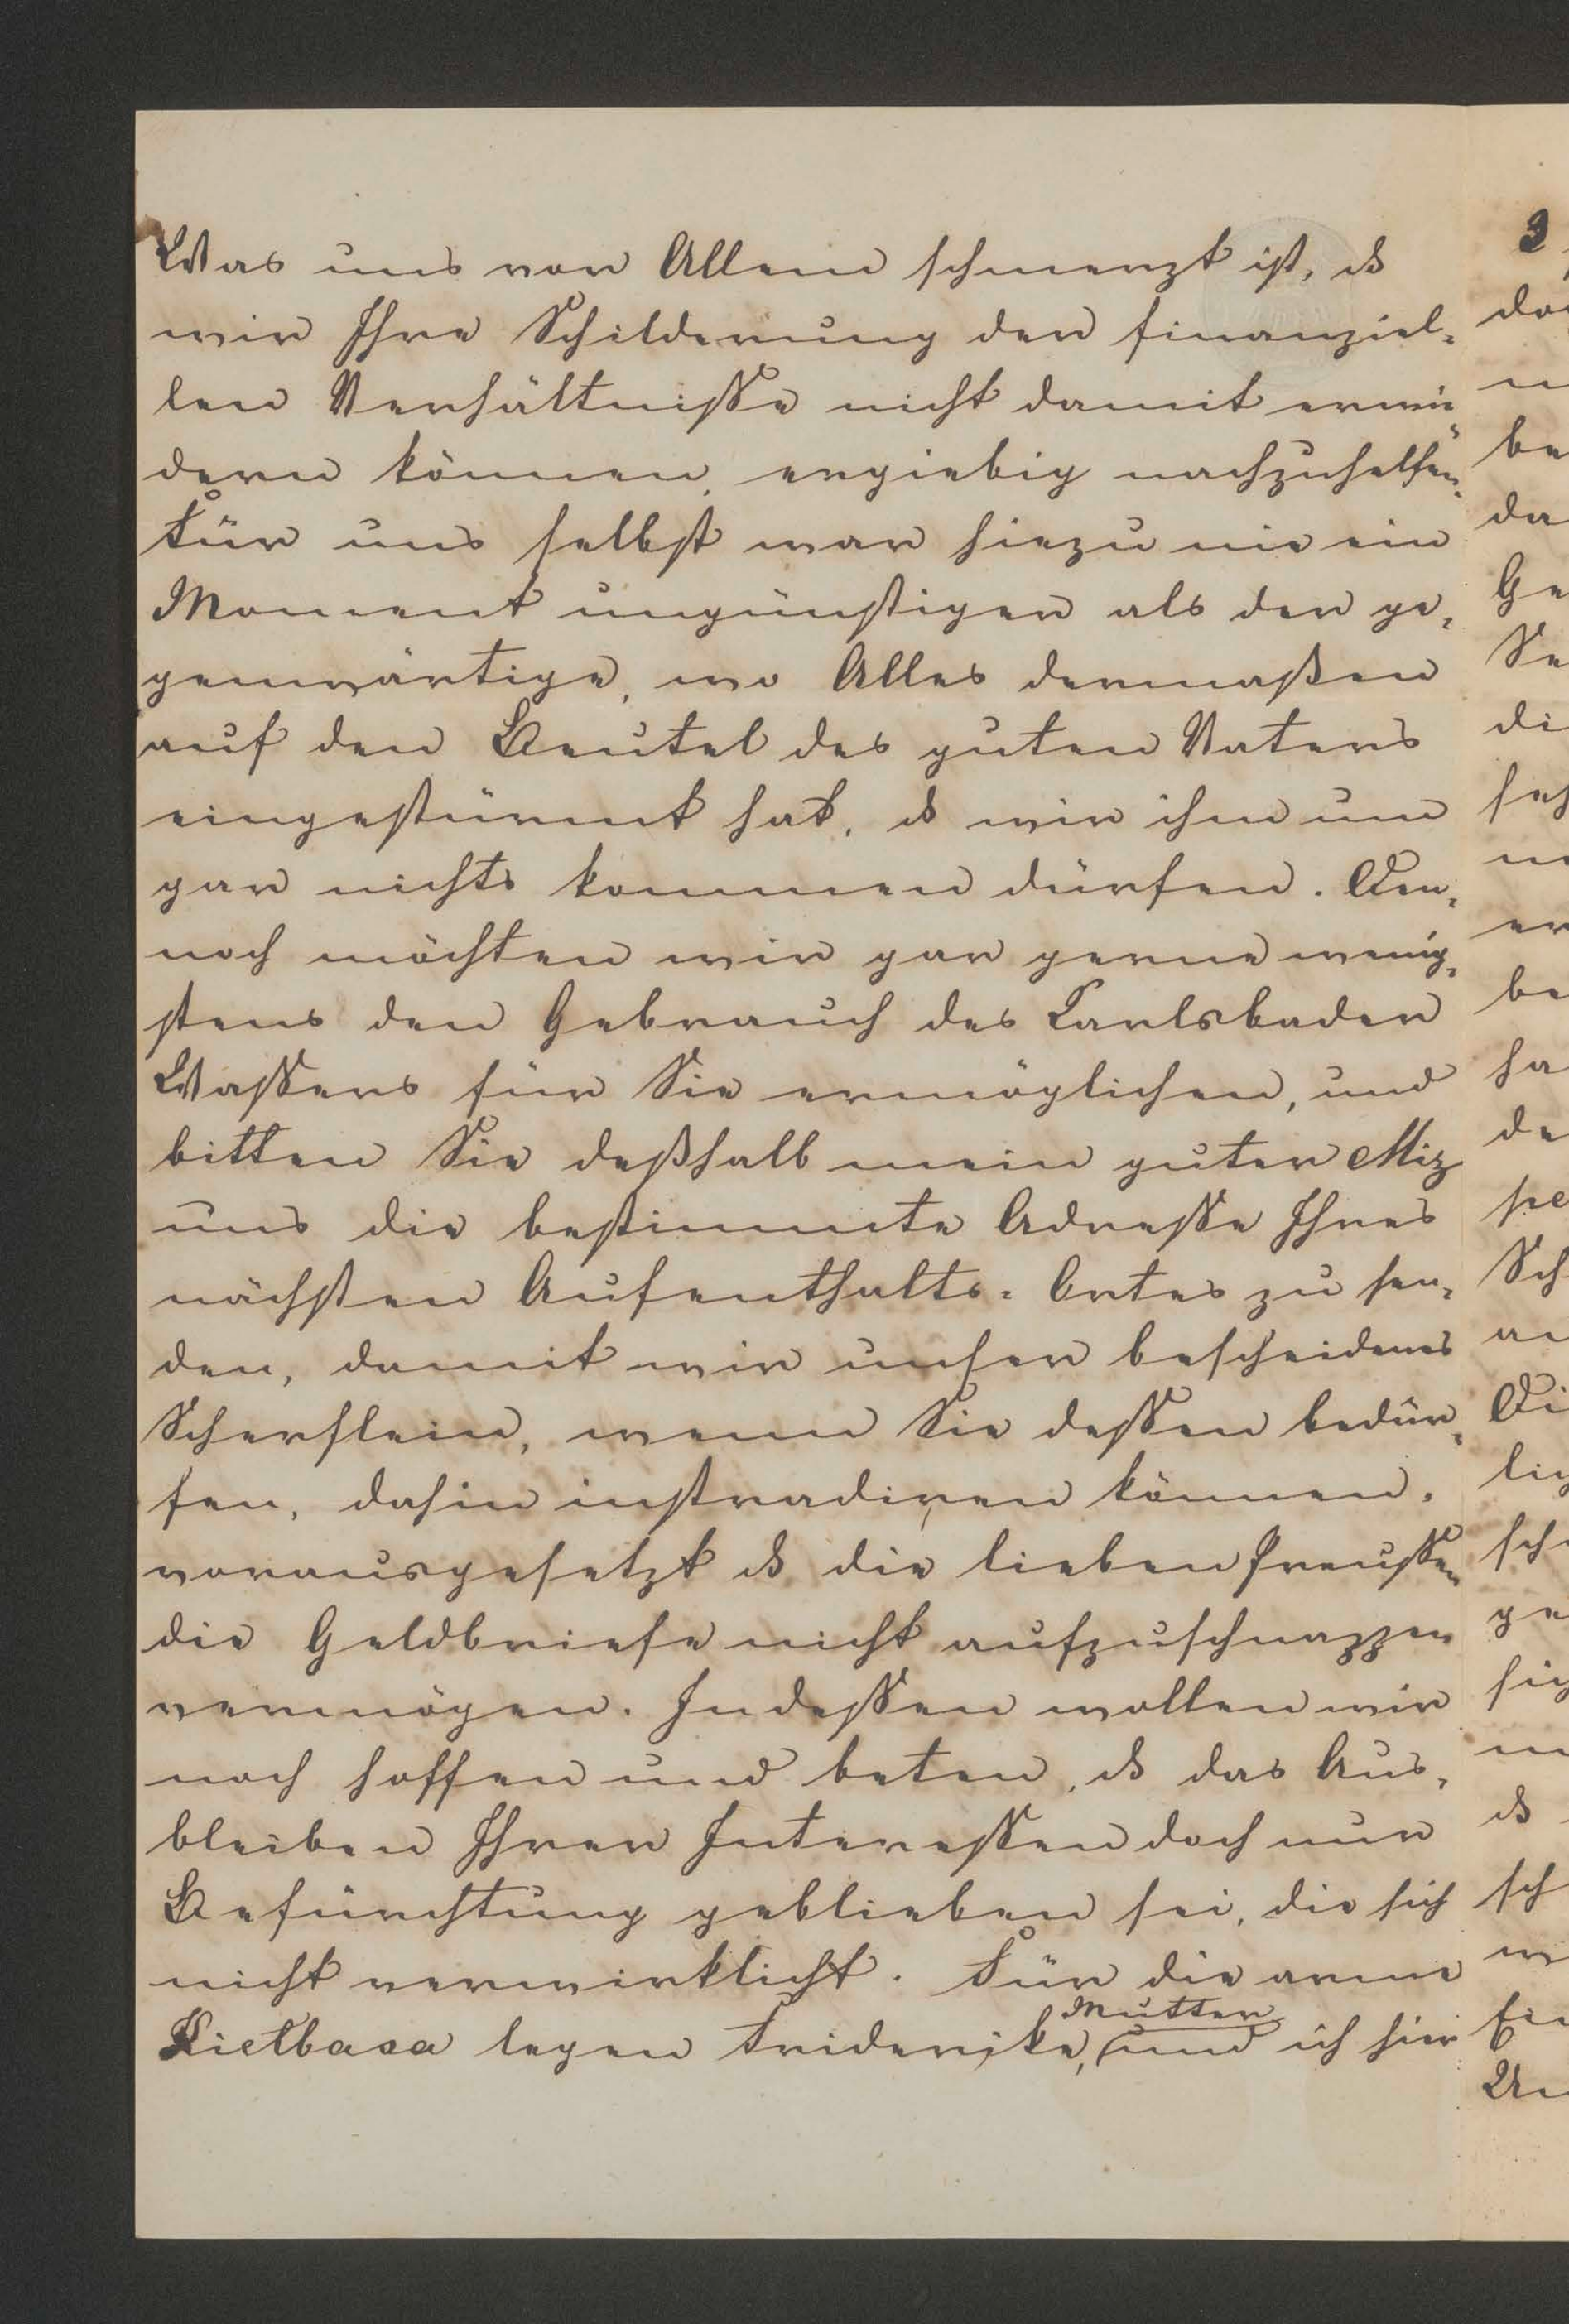 Was uns vor Allem schmerzt ist, ds
wir Ihre Schilderung der finanziel-
len Verhältnisse nicht damit erwie-
dern können, ergiebig nachzuhelfen.
Für uns selbst war hiezu nie ein
Moment ungünstiger als der ge-
genwärtige, wo Alles dermaßen
auf den Beutel des guten Vaters
eingestürmt hat, ds wir ihm um
gar nichts kommen dürfen. Den-
noch möchten wir gar gerne wenig-
stens den Gebrauch des Carlsbader
Wassers für Sie ermöglichen, und
bitten Sie deßhalb mein guter Miz
uns die bestimmte Adresse Ihres
nächsten Aufenthalts-Ortes zu sen-
den, damit wir unser bescheidenes
Scherflein, wenn Sie dessen bedür-
fen, dahin instradiren können,
vorausgesetzt ds die lieben Preussen
die Geldbriefe nicht aufzuschnappen
vermögen. Indessen wollen wir
noch hoffen und beten, ds das Aus-
bleiben Ihrer Interessen doch nur
Befürchtung geblieben sei, die sich
nicht verwirklicht. Für die arme
Mutter
Kietbasa legen Friderike, und ich hier
3